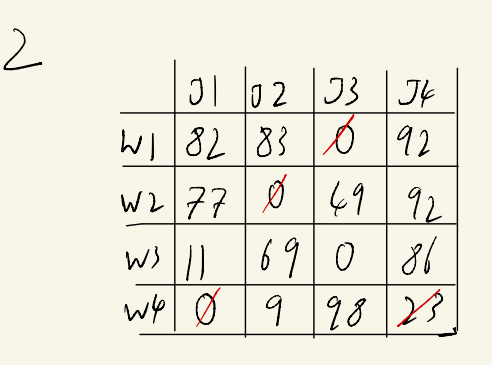 2
J1 J2 J3 J4
W1 82 83 0 92
W2 77 0 49 92
W3 11 69 0 86
W4 0 9 98 23